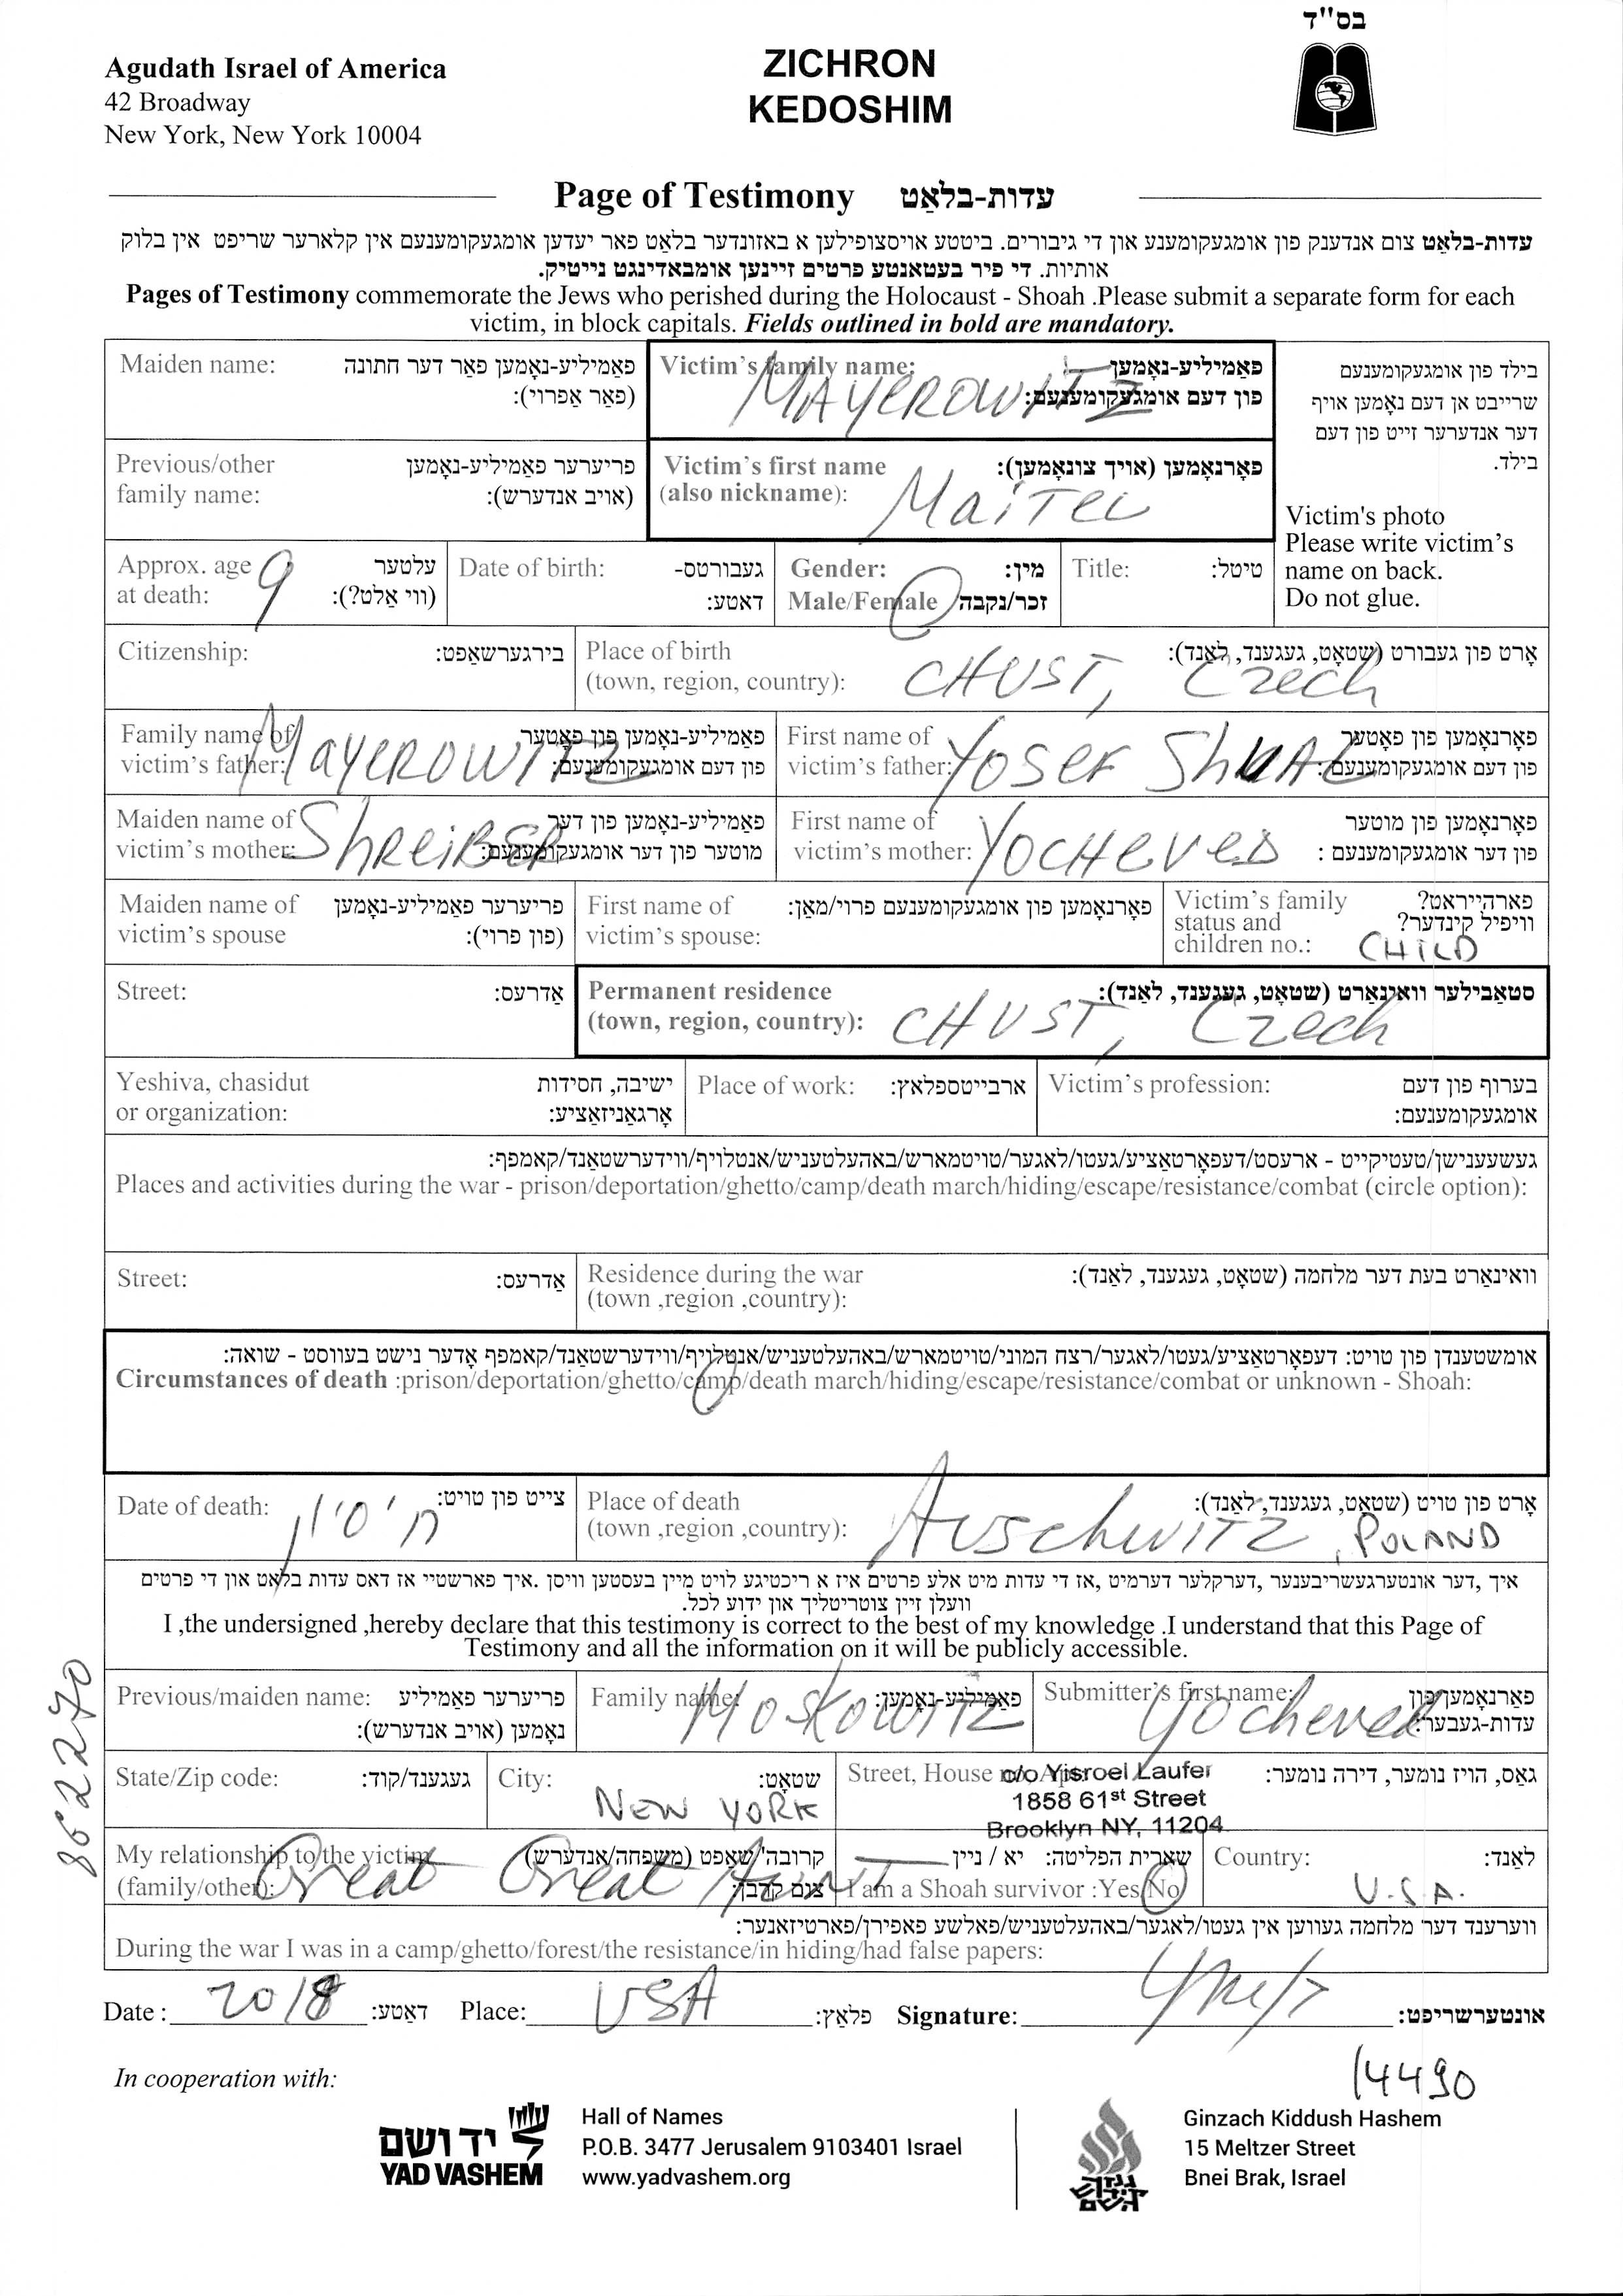 בס"ד
Agudath Israel of America
42 Broadway
New York, New York 10004
ZICHRON
KEDOSHIM
Page of Testimony עדות-בלאַט
עדות-בלאַט צום אנדענק פון אומגעקומענע און די גיבורים. ביטטע אויסצופילען א באזונדער בלאַט פאר יעדען אומגעקומענעם אין קלארער שריפט אין בלוק
אותיות. די פיר בעטאנטע פרטים זיינען אומבאדינגט נייטיק.
Pages of Testimony commemorate the Jews who perished during the Holocaust - Shoah .Please submit a separate form for each
victim, in block capitals. Fields outlined in bold are mandatory.
Maiden name: פאַמיליע-נאָמען פאַר דער חתונה
(פאַר אַפרוי):
Victim's family name: פאַמיליע-נאָמען
פון דעם אומגעקומענעם:
MAYEROWITZ
בילד פון אומגעקומענעם
שרייבט אן דעם נאָמען אויף
דער אנדערער זייט פון דעם
בילד.
Victim's photo
Please write victim's
name on back.
Do not glue.
Previous/other פריערער פאַמיליע-נאָמען
family name: (אויב אנדערש):
Victim's first name פאָרנאָמען (אויך צונאָמען):
(also nickname):
Maitel
Approx. age עלטער
at death: (ווי אַלט?):
9
Date of birth: געבורטס-
דאטע:
Gender: מין:
Male/Female זכר/נקבה
Title: טיטל:
Citizenship: בירגערשאַפט:
Place of birth אָרט פון געבורט (שטאָט, געגענד, לאַנד):
(town, region, country):
CHUST, Czech
Family name of פאַמיליע-נאָמען פון פאָטער
victim's father: פון דעם אומגעקומענעם:
MAYEROWITZ
First name of פאָרנאָמען פון פאָטער
victim's father: פון דעם אומגעקומענעם:
YOSEF ShUAL
Maiden name of פאַמיליע-נאָמען פון דער
victim's mother: מוטער פון דער אומגעקומענעם:
ShREiBER
First name of פאָרנאָמען פון מוטער
victim's mother: פון דער אומגעקומענעם :
YOCHEVED
Maiden name of פריערער פאַמיליע-נאָמען
victim's spouse (פון פרוי):
First name of פאָרנאָמען פון אומגעקומענעם פרוי/מאַן:
victim's spouse:
Victim's family פארהייראט?
status and וויפיל קינדער?
children no.:
CHILD
Street: אַדרעס:
Permanent residence סטאַבילער וואינאָרט (שטאָט, געגענד, לאַנד):
(town, region, country):
CHUST, Czech
Yeshiva, chasidut ישיבה, חסידות
or organization: אָרגאַניזאַציע:
Place of work: ארבייטספלאץ:
Victim's profession: בערוף פון דעם
אומגעקומענעם:
געשעענישן/טעטיקייט - ארעסט/דעפאָרטאַציע/געטו/לאגער/טויטמארש/באהעלטעניש/אנטלויף/ווידערשטאַנד/קאמפף:
Places and activities during the war - prison/deportation/ghetto/camp/death march/hiding/escape/resistance/combat (circle option):
Street: אַדרעס:
Residence during the war וואינאָרט בעת דער מלחמה (שטאָט, געגענד, לאַנד):
(town ,region ,country):
אומשטענדן פון טויט: דעפאָרטאַציע/געטו/לאגער/רצח המוני/טויטמארש/באהעלטעניש/אנטלויף/ווידערשטאַנד/קאמפף אָדער נישט בעוווסט - שואה:
Circumstances of death :prison/deportation/ghetto/camp/death march/hiding/escape/resistance/combat or unknown - Shoah:
Date of death: צייט פון טויט:
ח' סיון
Place of death אָרט פון טויט (שטאָט, געגענד, לאַנד):
(town ,region ,country):
Auschwitz, POLAND
איך ,דער אונטערגעשריבענער ,דערקלער דערמיט ,אז די עדות מיט אלע פרטים איז א ריכטיגע לויט מיין בעסטען וויסן .איך פארשטיי אז דאס עדות בלאט און די פרטים
וועלן זיין צוטריטליך און ידוע לכל.
I ,the undersigned ,hereby declare that this testimony is correct to the best of my knowledge .I understand that this Page of
Testimony and all the information on it will be publicly accessible.
Previous/maiden name: פריערער פאַמיליע
נאָמען (אויב אנדערש):
Family name: פאַמיליע-נאָמען:
Moskowitz
Submitter's first name: פאָרנאָמען פון
עדות-געבער:
Yocheved
State/Zip code: געגענד/קוד:
City: שטאָט:
NEW YORK
Street, House גאַס, הויז נומער, דירה נומער:
c/o Yisroel Laufer
1858 61st Street
Brooklyn NY, 11204
My relationship to the victim קרובה'שאַפט (משפחה/אנדערש)
(family/other): צום קדבן:
Great Great Aunt
שארית הפליטה: יא / ניין
I am a Shoah survivor :Yes/No
Country: לאַנד:
U.S.A.
ווערענד דער מלחמה געווען אין געטו/לאגער/באהעלטעניש/פאלשע פאפירן/פארטיזאנער:
During the war I was in a camp/ghetto/forest/the resistance/in hiding/had false papers:
Date : 2018 דאטע: Place: USA פלאַץ: Signature: אונטערשריפט:
862270
14490
In cooperation with:
יד ושם
YAD VASHEM
Hall of Names
P.O.B. 3477 Jerusalem 9103401 Israel
www.yadvashem.org
Ginzach Kiddush Hashem
15 Meltzer Street
Bnei Brak, Israel